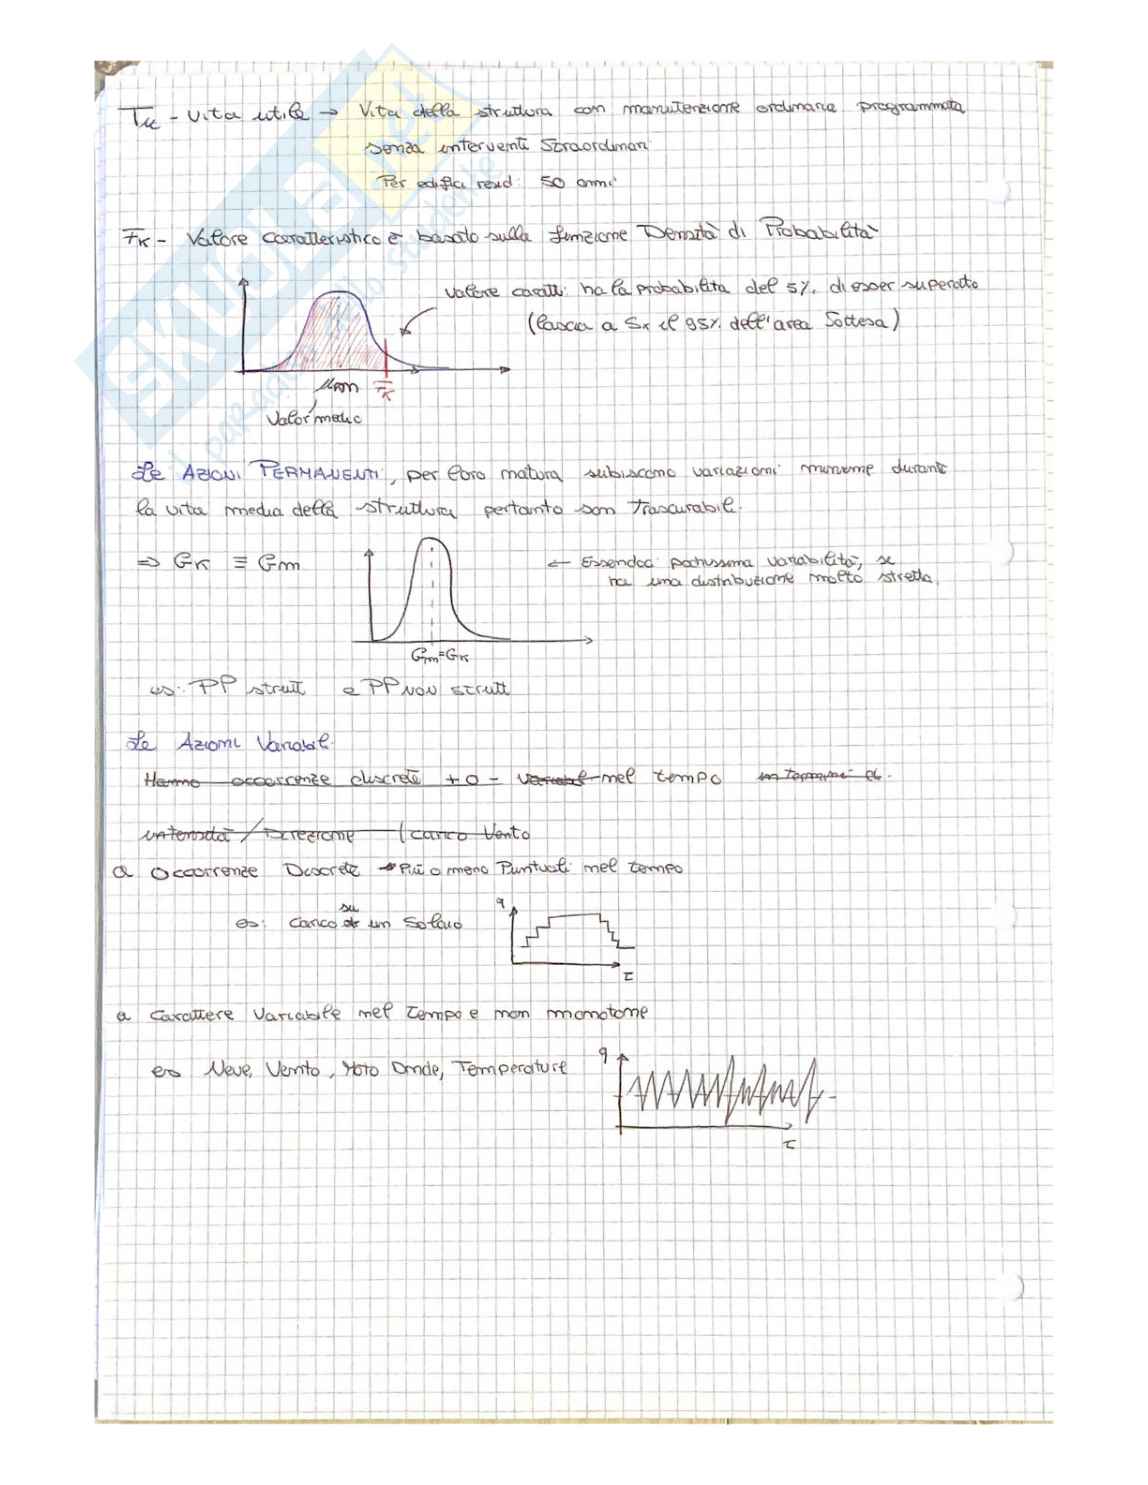 Tu - Vita utile → Vita della struttura con manutenzione ordinaria programmata
senza interventi straordinari
Per edifici resid: 50 anni
Fk - Valore caratteristico è basato sulla funzione Densità di Probabilità
Valore caratt: ha la probabilità del 5% di esser superato
(lascia a Sx il 95% dell'area Sottesa)
Fm Fk
Valor medio
Le AZIONI PERMANENTI, per loro natura subiscono variazioni minime durante
la vita media della struttura pertanto son Trascurabili.
⇒ Gk ≡ Gm
← Essendoci pochissima variabilità, si
ha una distribuzione molto stretta.
Gm=Gk
es: PP strutt e PP NON strutt
Le Azioni Variabili
Hanno occorrenze discrete + o - variabil nel tempo in termini di
intensità / Direzione (carico Vento
a Occorrenze Discrete → Più o meno Puntuali nel tempo
es: Carico su un Solaio
q
τ
a Carattere Variabile nel Tempo e non monotono
es Neve, Vento, Moto Onde, Temperature
q
τ
SKUOLA.net
il paradiso dello studente